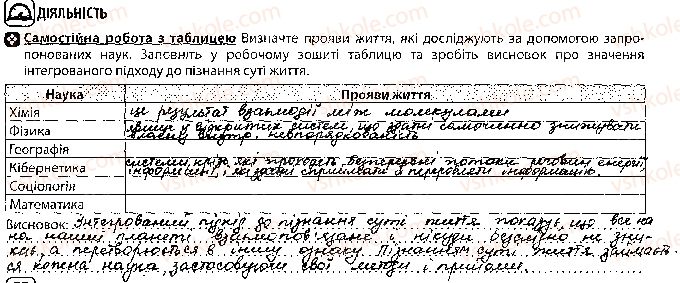 ДІЯЛЬНІСТЬ
Самостійна робота з таблицею Визначте прояви життя, які досліджують за допомогою запро-
понованих наук. Заповніть у робочому зошиті таблицю та зробіть висновок про значення
інтегрованого підходу до пізнання суті життя.
Наука Прояви життя
Хімія це результат взаємодії між молекулами
Фізика у відкритих систем, що здатні самочинно знижувати
власну внутр. невпорядкованість
Географія
системи, крізь які проходять безперервні потоки речовин, енергії
Кібернетика інформації, і які здатні сприймати й переробляти інформацію.
Соціологія
Математика
Висновок: Інтегрований підхід до пізнання суті життя показує, що все на
на нашій планеті взаємопов'язане і нікуди безслідно не зни-
кає, а перетворюється в іншу ознаку. Пізнанням суті життя займаєть-
ся кожна наука, застосовуючи свої методи і прийоми.